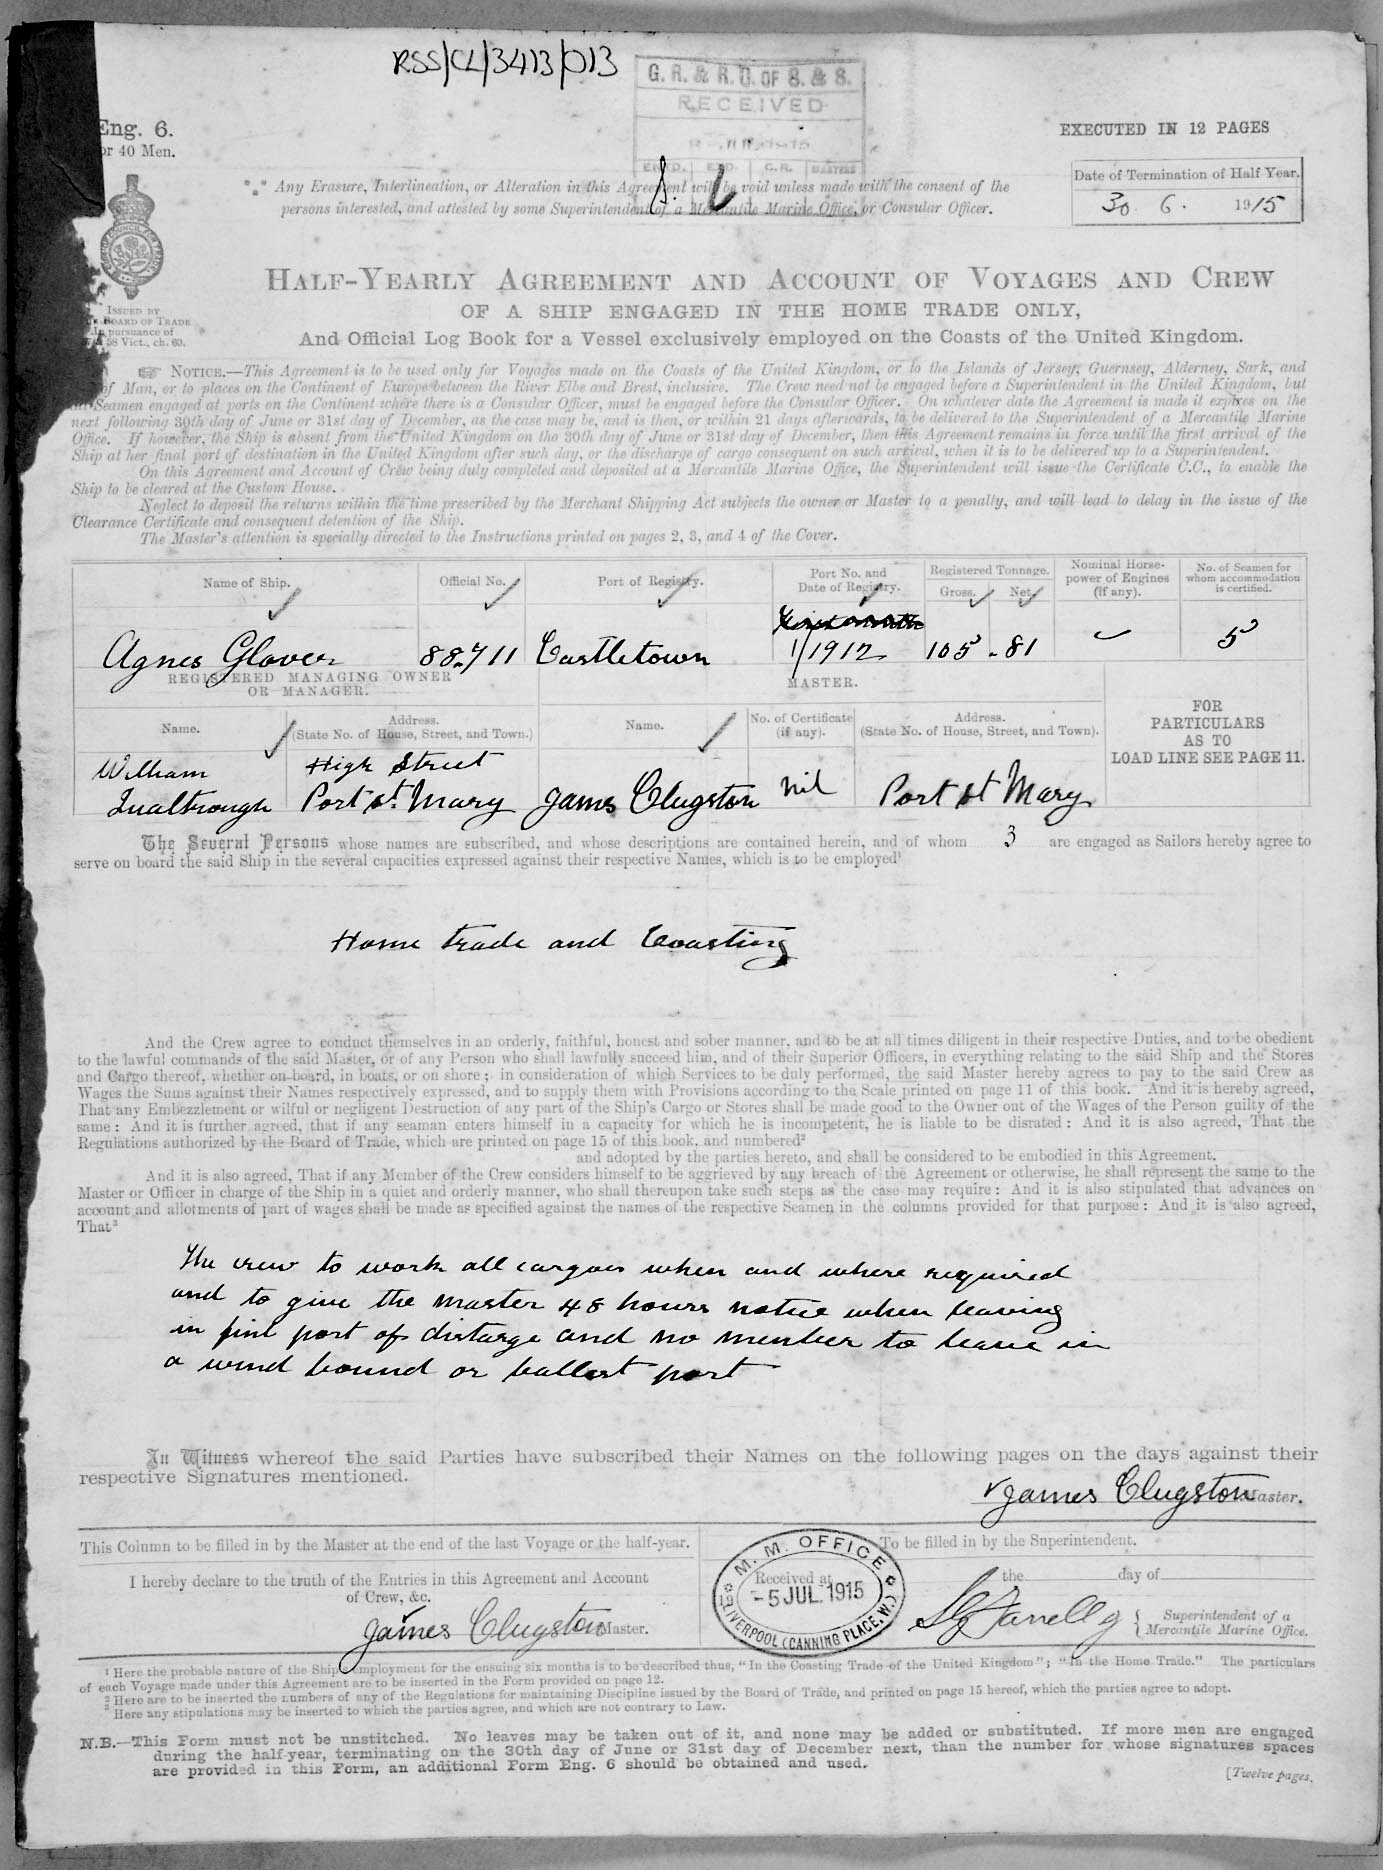 RSS/CL/3413/013
G. R. & R. O. OF S. & S.
RECEIVED
Eng. 6.
or 40 Men.
EXECUTED IN 12 PAGES
Date of Termination of Half Year.
30 6. 1915
Any Erasure, Interlineation, or Alteration in this Agreement will be void unless made with the consent of the
persons interested, and attested by some Superintendent of a Mercantile Marine Office, or Consular Officer.
HALF-YEARLY AGREEMENT AND ACCOUNT OF VOYAGES AND CREW
OF A SHIP ENGAGED IN THE HOME TRADE ONLY,
And Official Log Book for a Vessel exclusively employed on the Coasts of the United Kingdom.
ISSUED BY
BOARD OF TRADE
In pursuance of
58 Vict., ch. 60.
NOTICE.—This Agreement is to be used only for Voyages made on the Coasts of the United Kingdom, or to the Islands of Jersey, Guernsey, Alderney, Sark, and
of Man, or to places on the Continent of Europe between the River Elbe and Brest, inclusive. The Crew need not be engaged before a Superintendent in the United Kingdom, but
Seamen engaged at ports on the Continent where there is a Consular Officer, must be engaged before the Consular Officer. On whatever date the Agreement is made it expires on the
next following 30th day of June or 31st day of December, as the case may be, and is then, or within 21 days afterwards, to be delivered to the Superintendent of a Mercantile Marine
Office. If however, the Ship is absent from the United Kingdom on the 30th day of June or 31st day of December, then this Agreement remains in force until the first arrival of the
Ship at her final port of destination in the United Kingdom after such day, or the discharge of cargo consequent on such arrival, when it is to be delivered up to a Superintendent.
On this Agreement and Account of Crew being duly completed and deposited at a Mercantile Marine Office, the Superintendent will issue the Certificate C.C., to enable the
Ship to be cleared at the Custom House.
Neglect to deposit the returns within the time prescribed by the Merchant Shipping Act subjects the owner or Master to a penalty, and will lead to delay in the issue of the
Clearance Certificate and consequent detention of the Ship.
The Master's attention is specially directed to the Instructions printed on pages 2, 3, and 4 of the Cover.
Name of Ship. Official No. Port of Registry. Port No. and Date of Registry. Registered Tonnage. Gross. Net. Nominal Horse-power of Engines (if any). No. of Seamen for whom accommodation is certified.
Agnes Glover 88711 Castletown 1/1912 105 81 5
REGISTERED MANAGING OWNER OR MANAGER. MASTER.
Name. Address. (State No. of House, Street, and Town.) Name. No. of Certificate (if any). Address. (State No. of House, Street, and Town).
FOR
PARTICULARS
AS TO
LOAD LINE SEE PAGE 11.
William High Street
Qualtrough Port St. Mary James Clugston nil Port St Mary
The Several Persons whose names are subscribed, and whose descriptions are contained herein, and of whom 3 are engaged as Sailors hereby agree to
serve on board the said Ship in the several capacities expressed against their respective Names, which is to be employed¹
Home trade and Coasting
And the Crew agree to conduct themselves in an orderly, faithful, honest and sober manner, and to be at all times diligent in their respective Duties, and to be obedient
to the lawful commands of the said Master, or of any Person who shall lawfully succeed him, and of their Superior Officers, in everything relating to the said Ship and the Stores
and Cargo thereof, whether on board, in boats, or on shore; in consideration of which Services to be duly performed, the said Master hereby agrees to pay to the said Crew as
Wages the Sums against their Names respectively expressed, and to supply them with Provisions according to the Scale printed on page 11 of this book. And it is hereby agreed,
That any Embezzlement or wilful or negligent Destruction of any part of the Ship's Cargo or Stores shall be made good to the Owner out of the Wages of the Person guilty of the
same: And it is further agreed, that if any seaman enters himself in a capacity for which he is incompetent, he is liable to be disrated: And it is also agreed, That the
Regulations authorized by the Board of Trade, which are printed on page 15 of this book, and numbered²
and adopted by the parties hereto, and shall be considered to be embodied in this Agreement.
And it is also agreed, That if any Member of the Crew considers himself to be aggrieved by any breach of the Agreement or otherwise, he shall represent the same to the
Master or Officer in charge of the Ship in a quiet and orderly manner, who shall thereupon take such steps as the case may require: And it is also stipulated that advances on
account and allotments of part of wages shall be made as specified against the names of the respective Seamen in the columns provided for that purpose: And it is also agreed,
That³
The crew to work all cargoes when and where required
and to give the master 48 hours notice when leaving
in final port of distarge and no member to leave in
a wind bound or ballast port
In Witness whereof the said Parties have subscribed their Names on the following pages on the days against their
respective Signatures mentioned.
James Clugston Master.
This Column to be filled in by the Master at the end of the last Voyage or the half-year.
To be filled in by the Superintendent.
I hereby declare to the truth of the Entries in this Agreement and Account
of Crew, &c.
James Clugston Master.
Received at the day of
M. M. OFFICE
-5 JUL. 1915
LIVERPOOL (CANNING PLACE, W.)
Superintendent of a
Mercantile Marine Office.
¹ Here the probable nature of the Ship's employment for the ensuing six months is to be described thus, "In the Coasting Trade of the United Kingdom"; "In the Home Trade." The particulars
of each Voyage made under this Agreement are to be inserted in the Form provided on page 12.
² Here are to be inserted the numbers of any of the Regulations for maintaining Discipline issued by the Board of Trade, and printed on page 15 hereof, which the parties agree to adopt.
³ Here any stipulations may be inserted to which the parties agree, and which are not contrary to Law.
N.B.—This Form must not be unstitched. No leaves may be taken out of it, and none may be added or substituted. If more men are engaged
during the half-year, terminating on the 30th day of June or 31st day of December next, than the number for whose signatures spaces
are provided in this Form, an additional Form Eng. 6 should be obtained and used.
[Twelve pages.